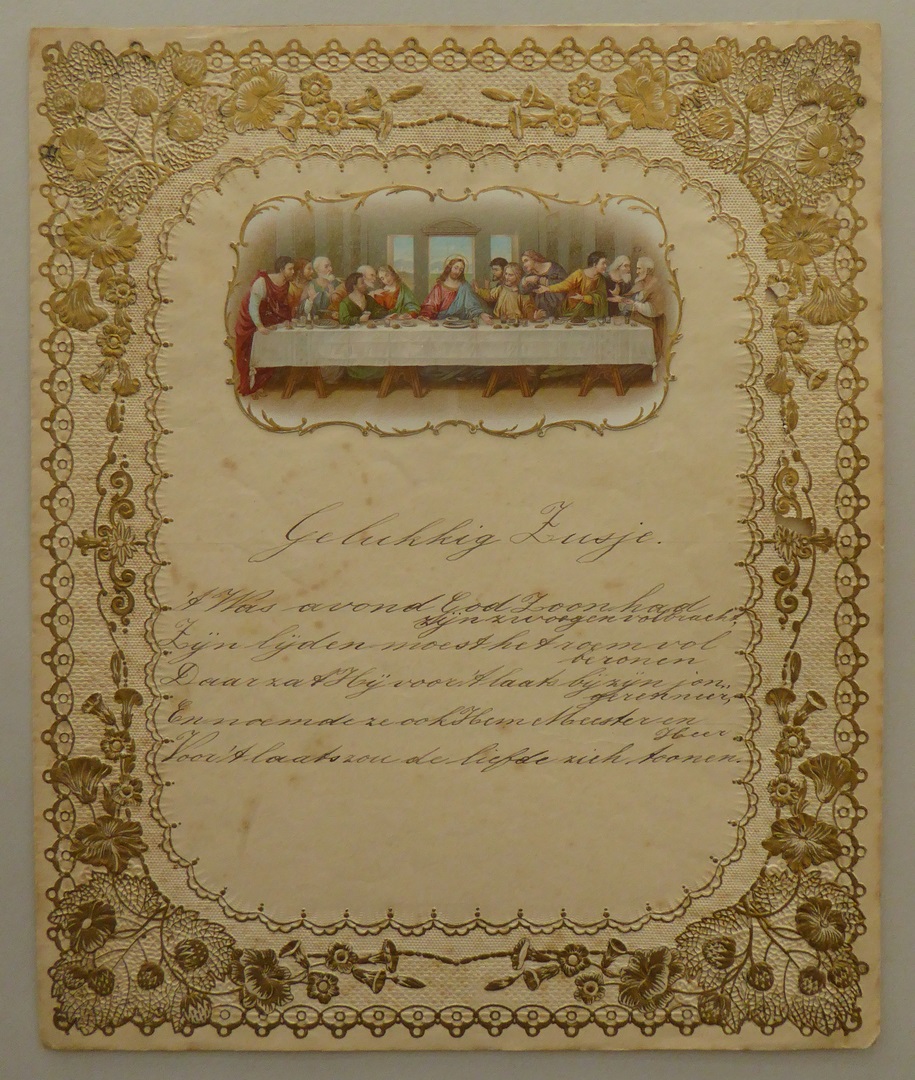 Gelukkig Zusje.
't Was avond God Zoon had
zijn zworgen volbracht,
Zijn lijden moest het roem vol
beronen
Daar zat Hij voor 't laats bij zijn jon,
gerennier,
En noemde ze ook Hem Meester en
Heer
Voor 't laats zou de liefde zich toonen.